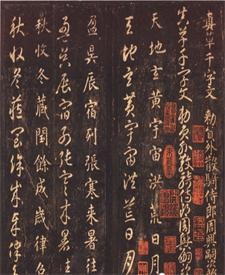 真草千字文 勅員外散騎侍郎周興嗣
真草千字文 勅員外散騎侍郎周興嗣
天地玄黃宇宙洪荒日月
天地玄黃宇宙洪荒日月
盈昃辰宿列張寒来暑往
盈昃辰宿列張寒来暑往
秋收冬藏閏餘成歲律
秋收冬藏閏餘成歲律